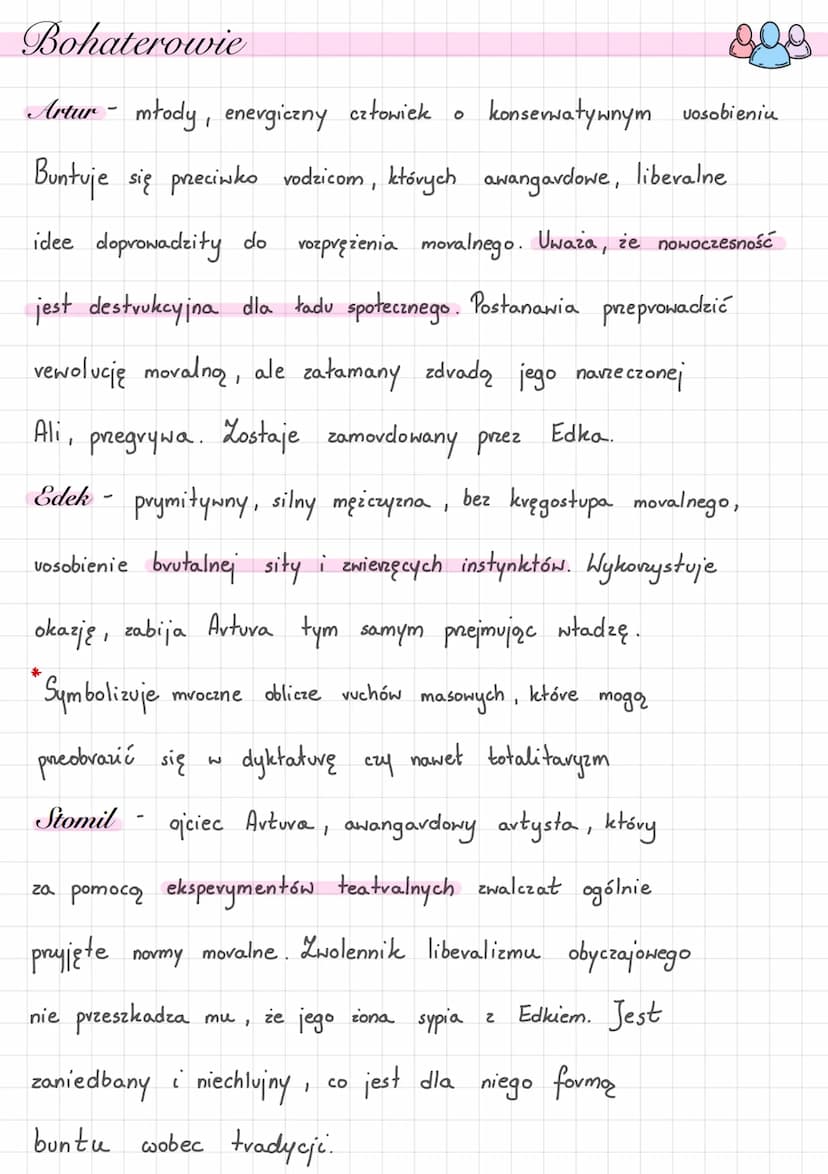 Bohaterowie
Artur - młody, energiczny człowiek o konserwatywnym uosobieniu
Buntuje się przeciwko rodzicom, których awangardowe, liberalne
idee doprowadziły do rozprężenia moralnego. Uważa, że nowoczesność
jest destrukcyjna dla ładu społecznego. Postanawia przeprowadzić
rewolucję moralną, ale załamany zdradą jego narzeczonej
Ali, przegrywa. Zostaje zamordowany przez Edka.
Edek - prymitywny, silny mężczyzna, bez kręgosłupa moralnego,
uosobienie brutalnej siły i zwierzęcych instynktów. Wykorzystuje
okazję, zabija Artura tym samym przejmując władzę.
*Symbolizuje mroczne oblicze ruchów masowych, które mogą
przeobrazić się w dyktaturę czy nawet totalitaryzm
Stomil - ojciec Artura, awangardowy artysta, który
za pomocą eksperymentów teatralnych zwalczał ogólnie
przyjęte normy moralne. Zwolennik liberalizmu obyczajowego
nie przeszkadza mu, że jego żona sypia z Edkiem. Jest
zaniedbany i niechlujny, co jest dla niego formą
buntu wobec tradycji.